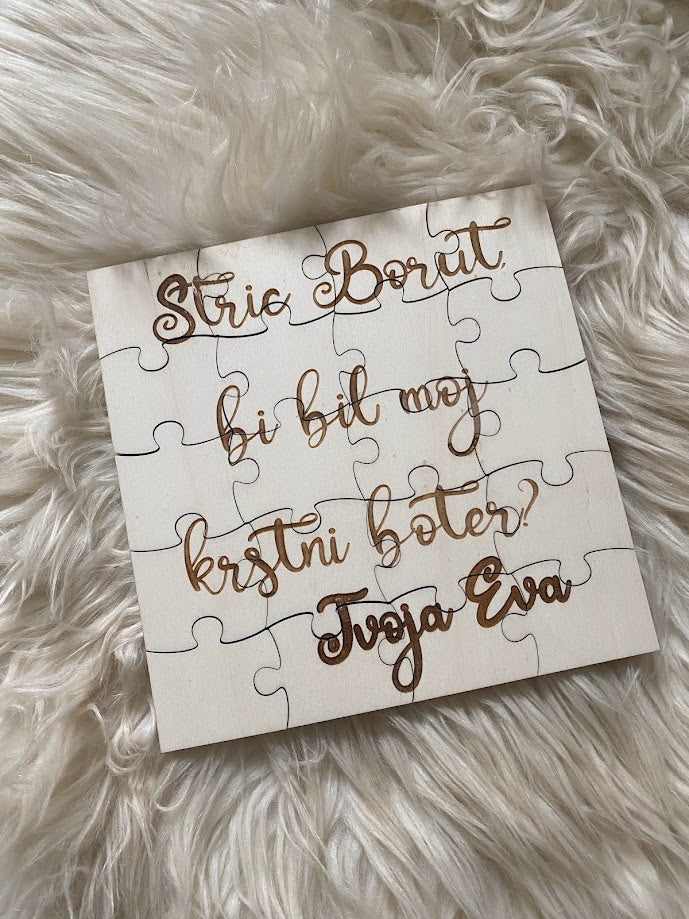 Stric Borut,
bi bil moj
krstni boter?
Tvoja Eva